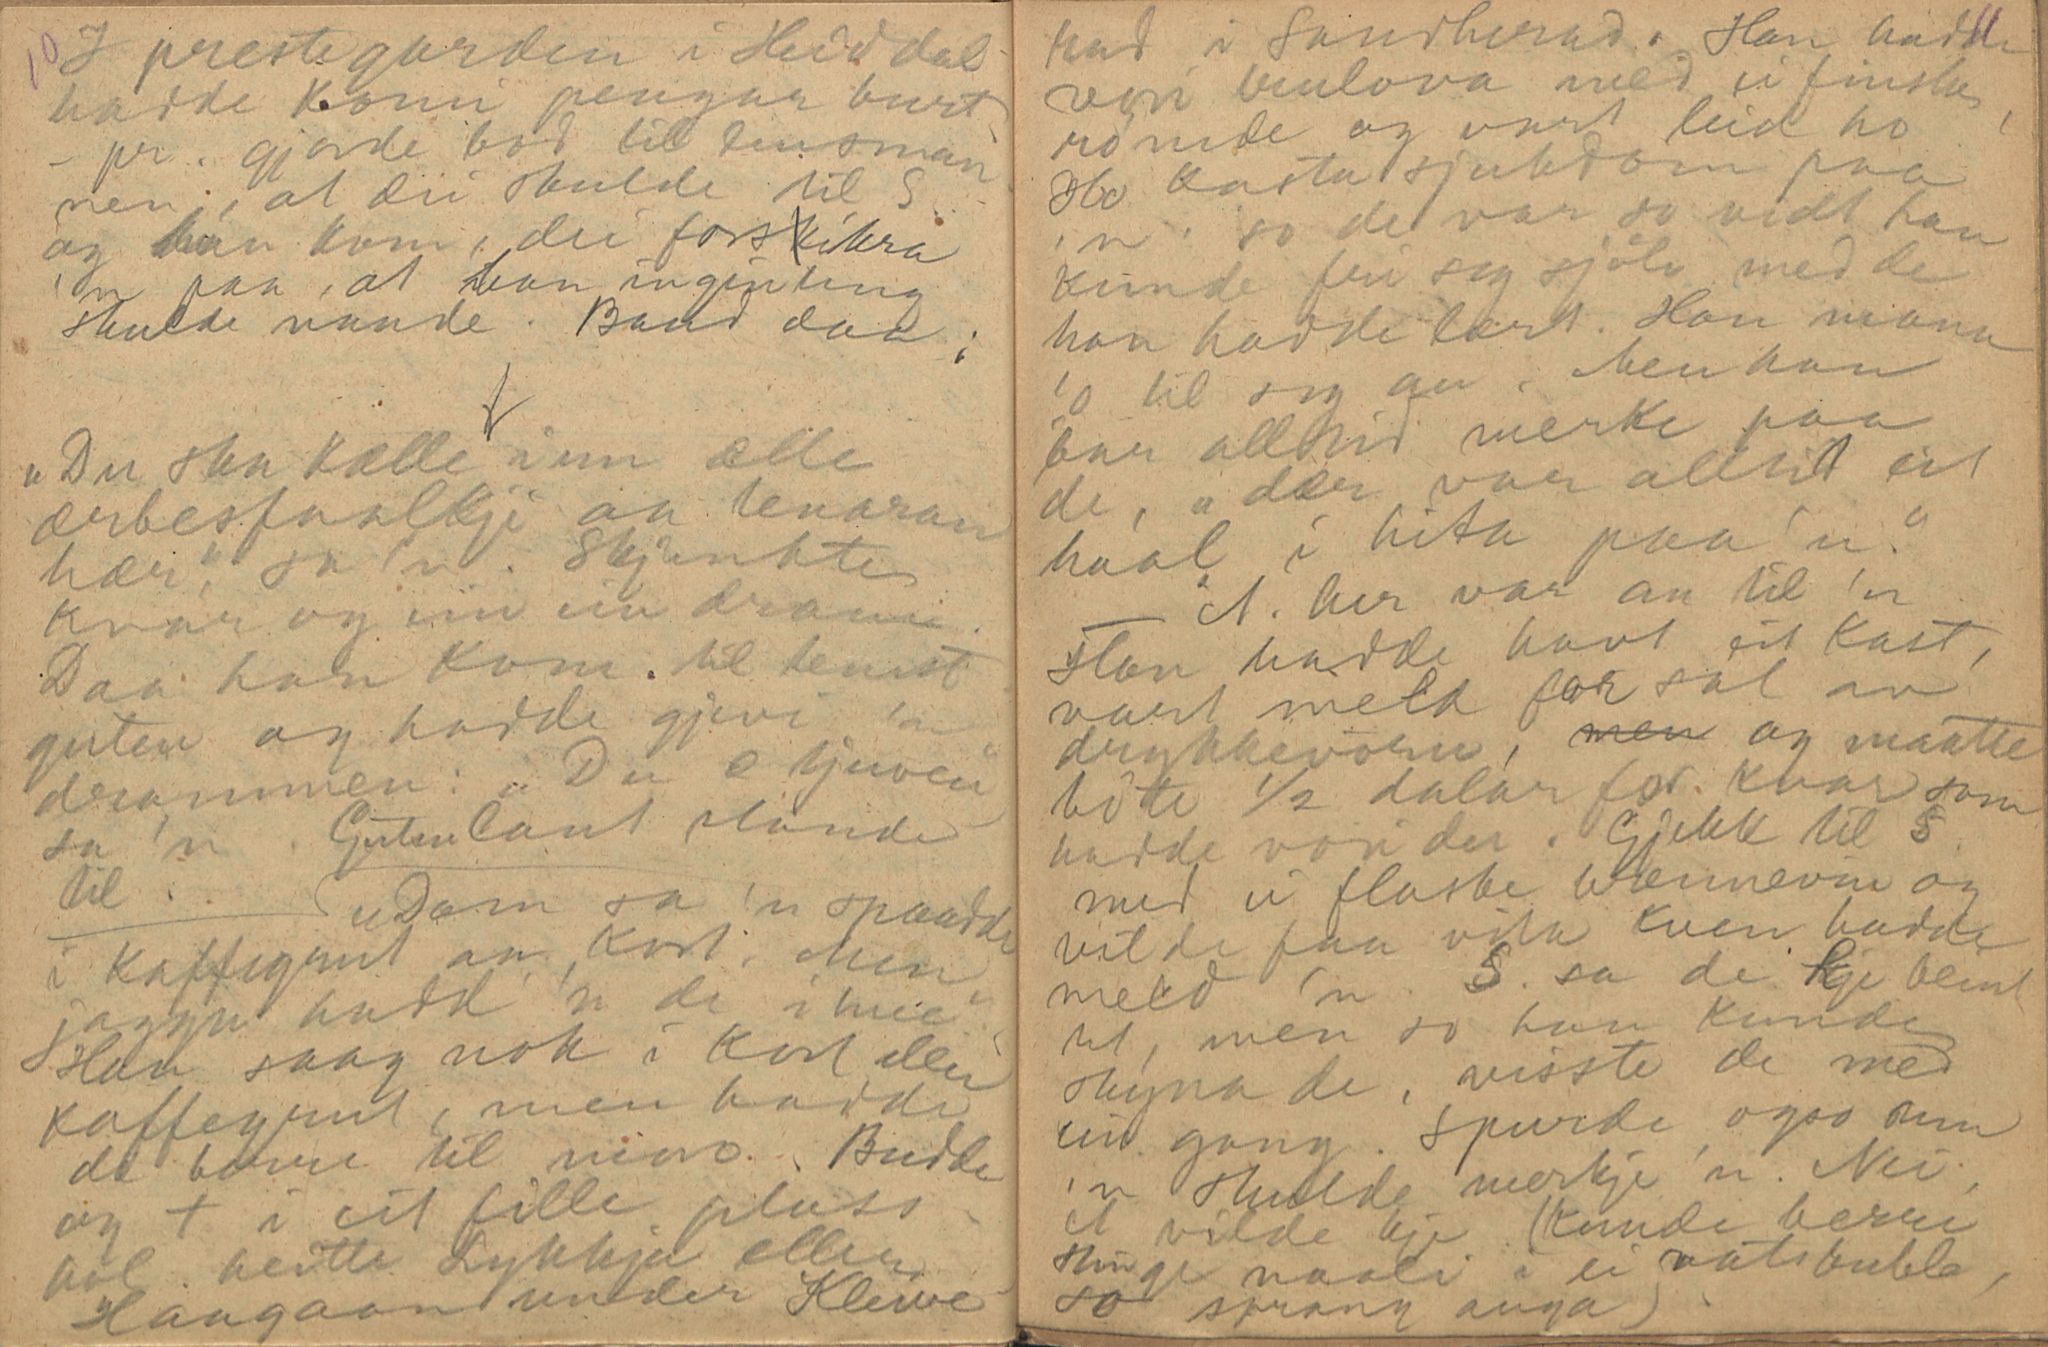 10
I prestegarden i Heiddal
hadde komi pengar burt
- pr. gjorde bod til lensman
nen, at dei skulde til S.
og han kom, dei forsikra
'n paa, at han ingenting
skulde vande. Baud daa;
"Du ska kalle inn alle
ærbesfaalkji aa tenaran
hær", sa 'n. Skjenkte
kvar og ein ein dram.
Daa han kom til tenest
guten og hadde gjevi 'n
drammen: "Du e tjuven"
sa 'n. Guten laut stande
til.
"Dom sa 'n spaadde
i kaffegrut aa kort. Men
jaggu hadd 'n de i hue"
Han saag nok i kort eller
kaffegrut, men hadde
de berre til moro. Budde
og † i eit fille plass
hol. heitte Lykkja eller
Haagaan under Kleive
11
stad i Sandherad. Han hadde
vori trulova med ei finsk,
rømde og vart leid ho
Ho kasta sjukdom paa
'n. so de var so vidt han
kunde fri seg sjølv med de
han hadde lært. Han mana
'o til seg au. Men han
bar alltid merke paa
de, "dær var alltid eit
haal i hita paa 'n."
A. her var au til 'n
Han hadde havt eit kast,
vart meld for sal av
drykkevorur, men og maatte
bøte 1/2 dalar for kvar som
hadde vori der. Gjekk til S.
med ei flaske brennevin og
vilde faa vita kven hadde
meld 'n. S. sa de kje beint
ut, men so han kunde
skyna de, visste de med
ein gong. Spurde ogso um
'n skulde merkje 'n. Nei,
A vilde kje (kunde berre
stinge naali i ei vatsbubla,
so sprang auga).